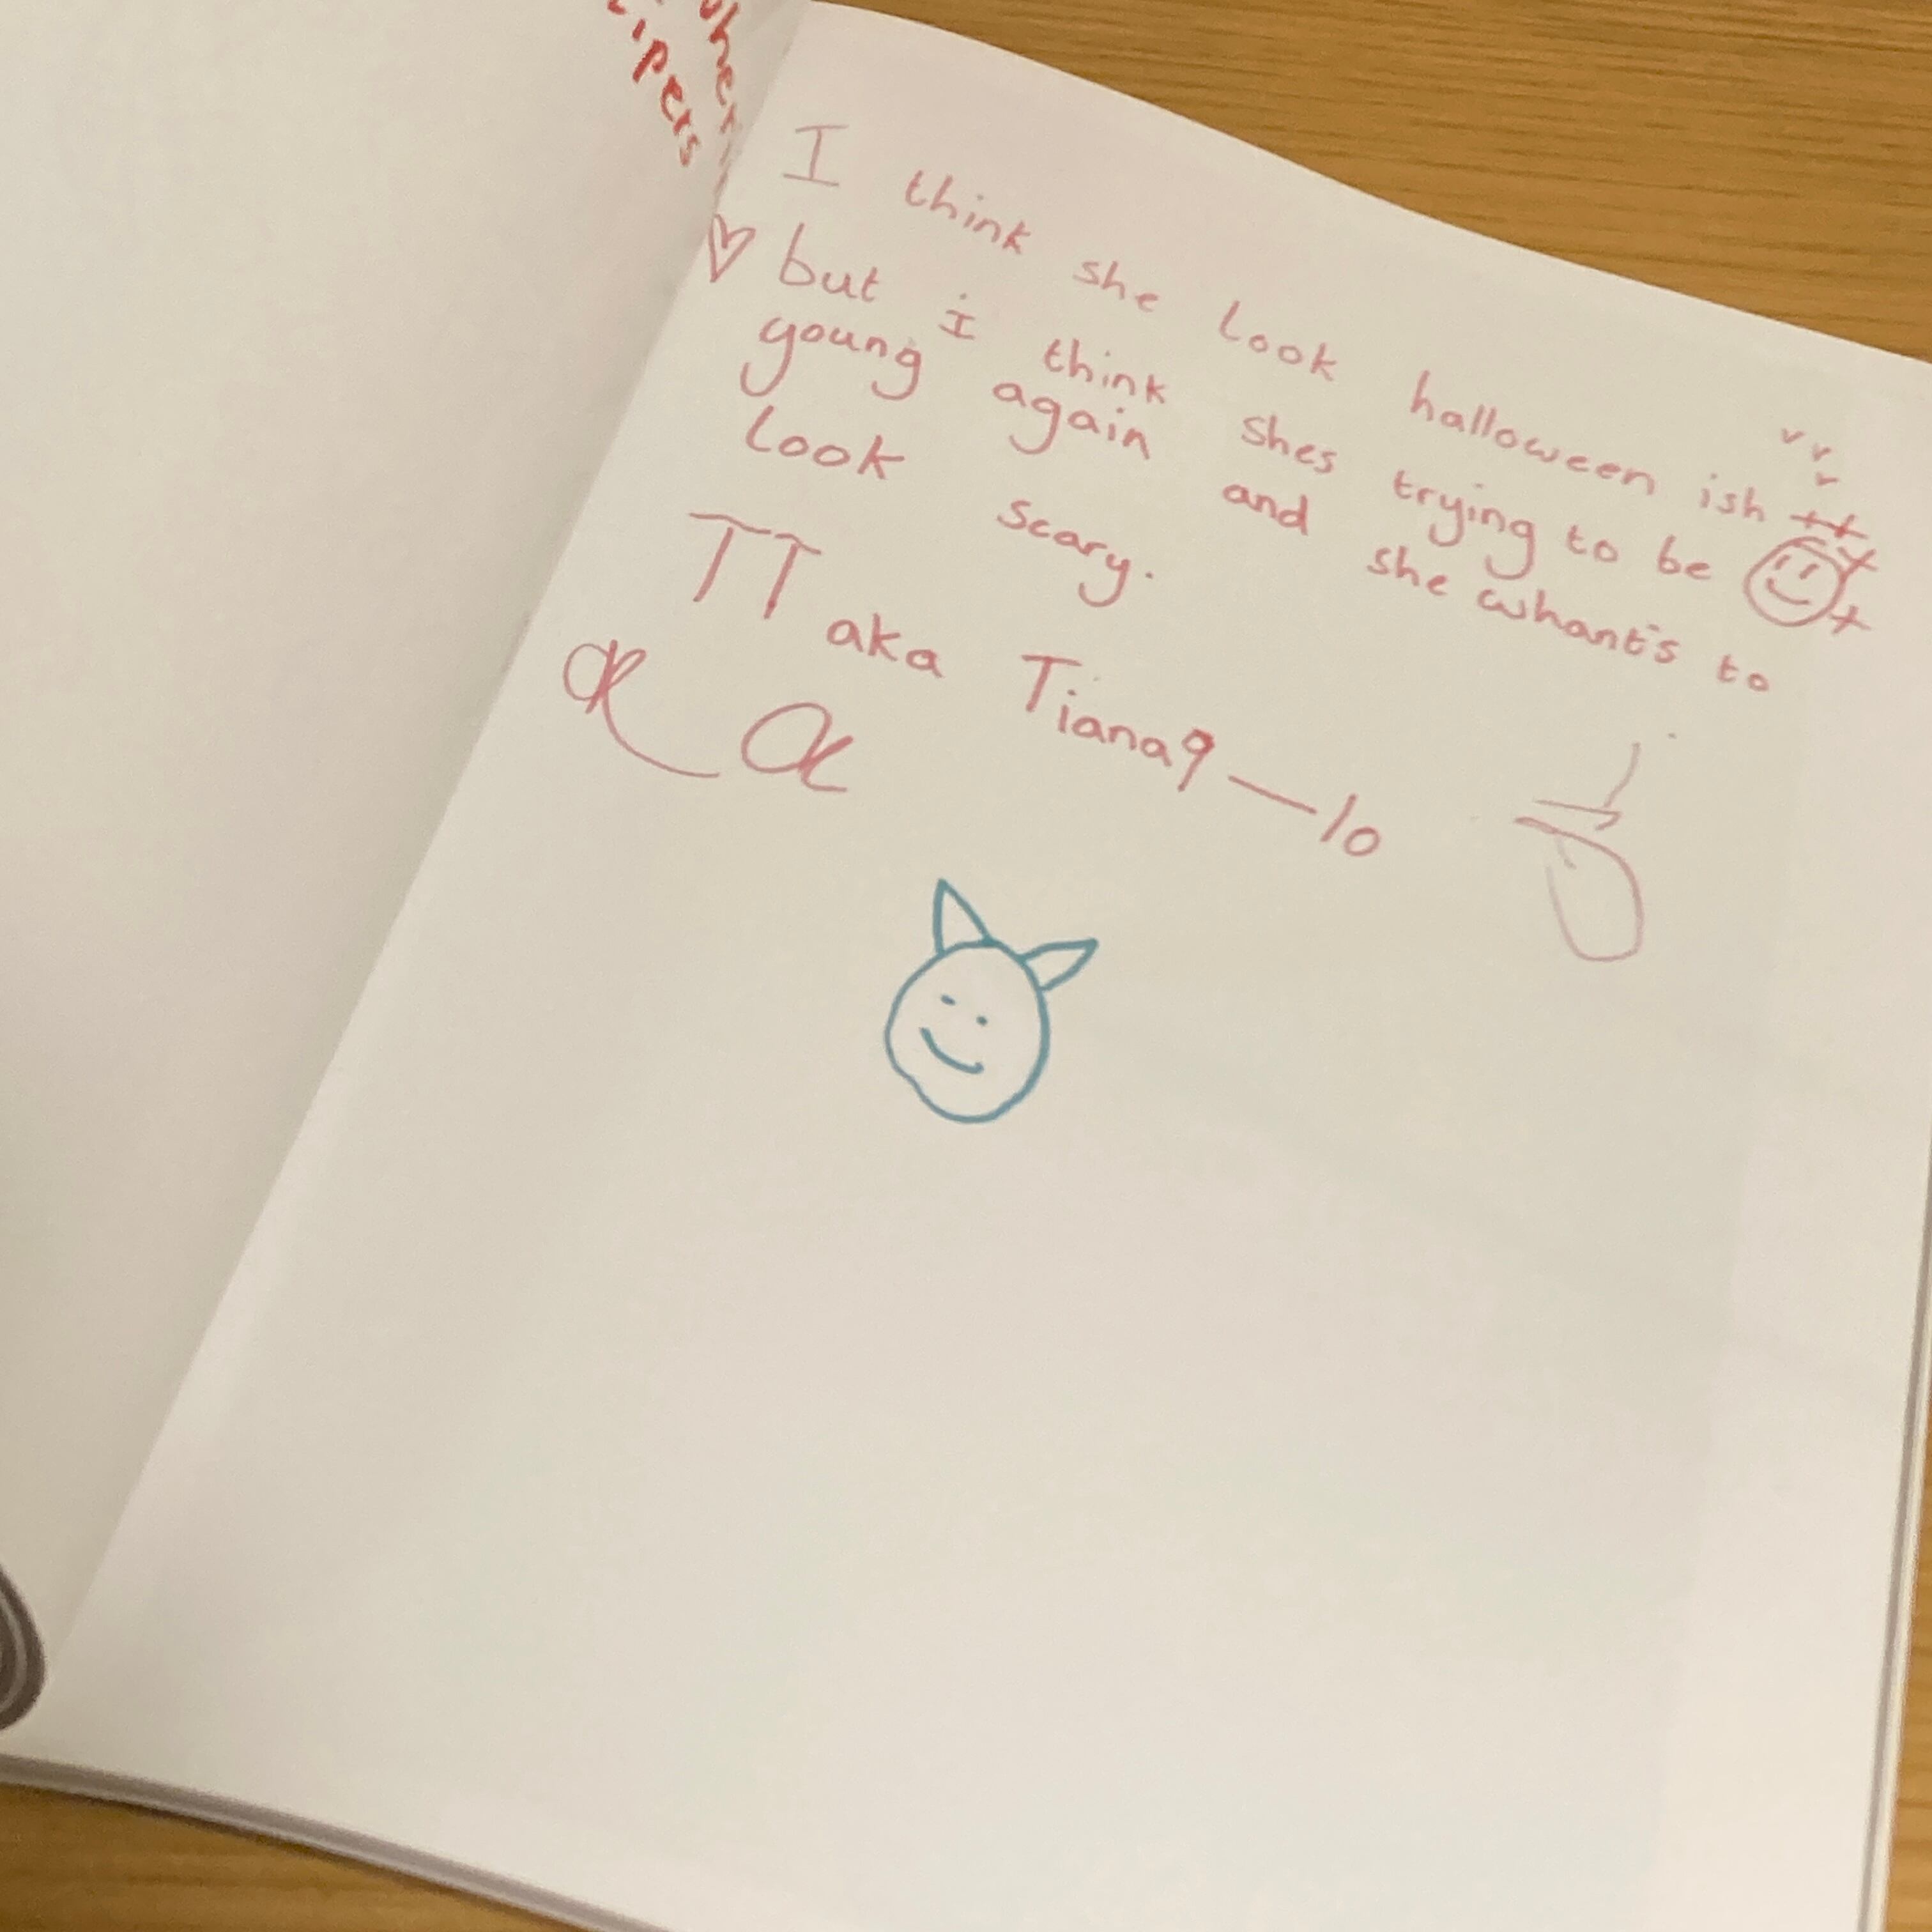 ipers
I think she look halloween ish
but i think shes trying to be
young again and she whant's to
look scary.
TT aka Tiana 9—10